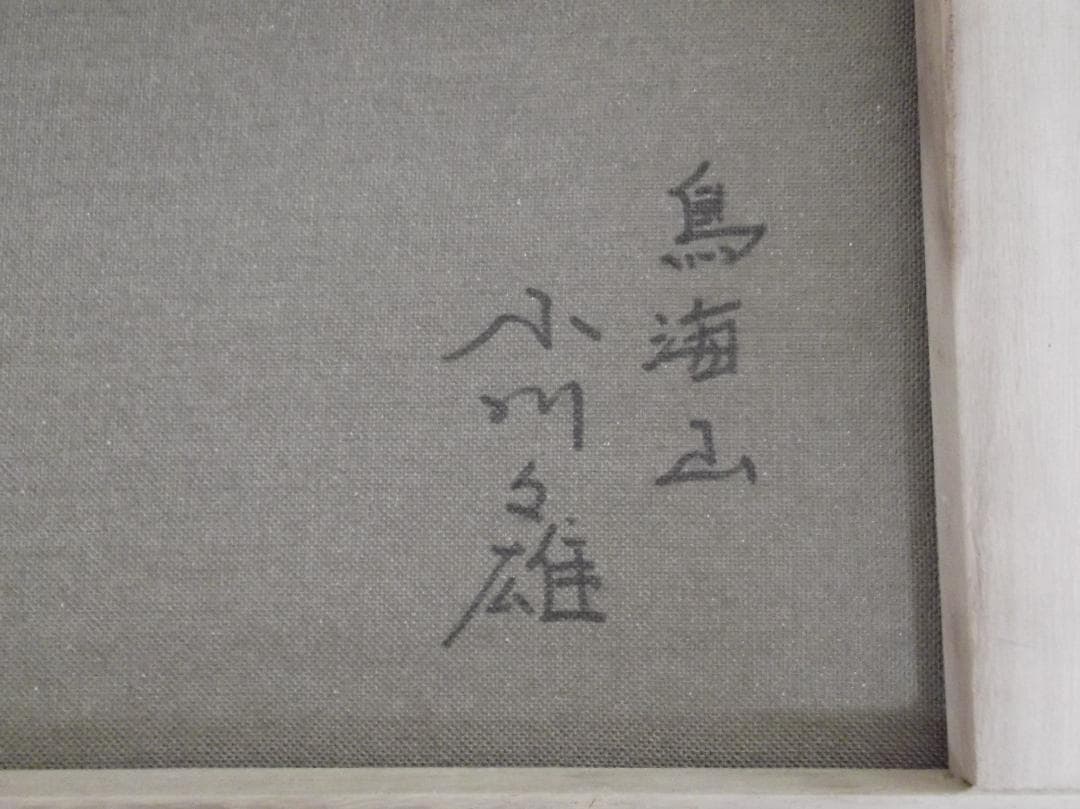 鳥海山
小川久雄